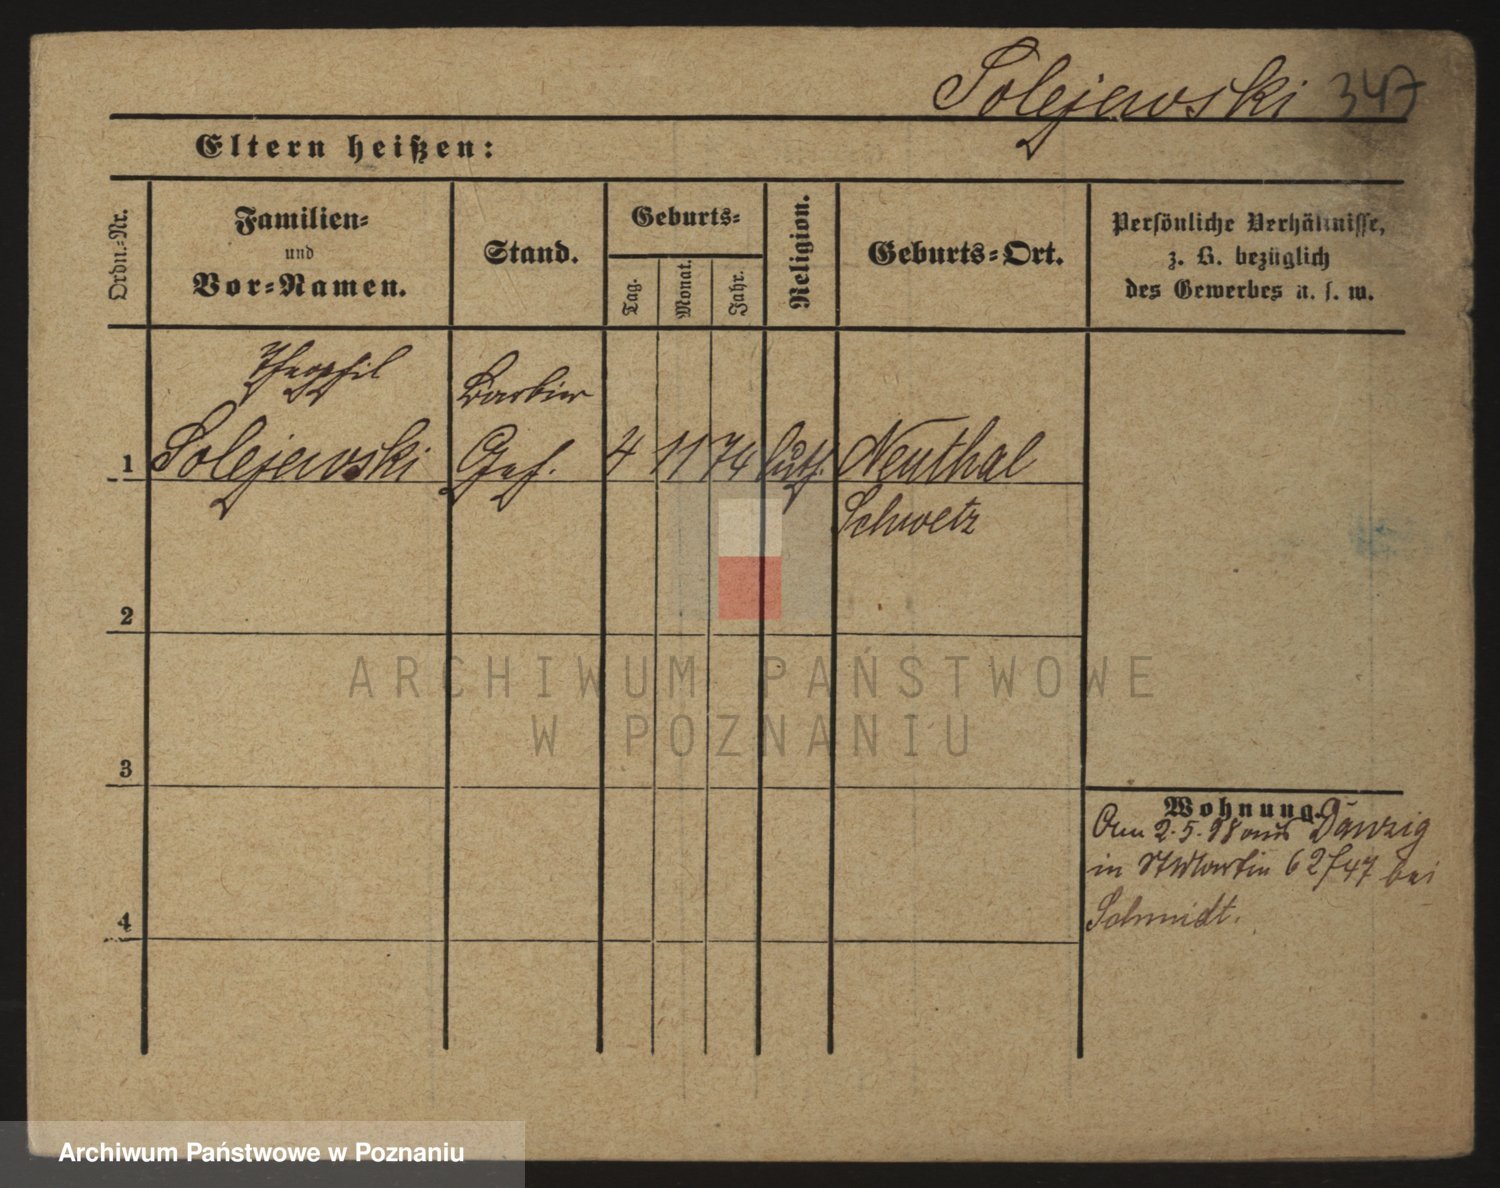 Solejewski 347
Eltern heißen:
Ordn.-Nr.
Familien-
und
Vor-Namen.
Stand.
Geburts-
Tag.
Monat.
Jahr.
Religion.
Geburts-Ort.
Persönliche Verhältnisse,
z. B. bezüglich
des Gewerbes u. s. w.
Theophil
Barbier
1 Solejewski Geh. 4 11 74 luth. Neuthal
Schwetz
2
3
4
Wohnung.
Am 2.5.98 aus Danzig
in St Martin 62/47 bei
Schmidt.
ARCHIWUM PAŃSTWOWE
W POZNANIU
Archiwum Państwowe w Poznaniu